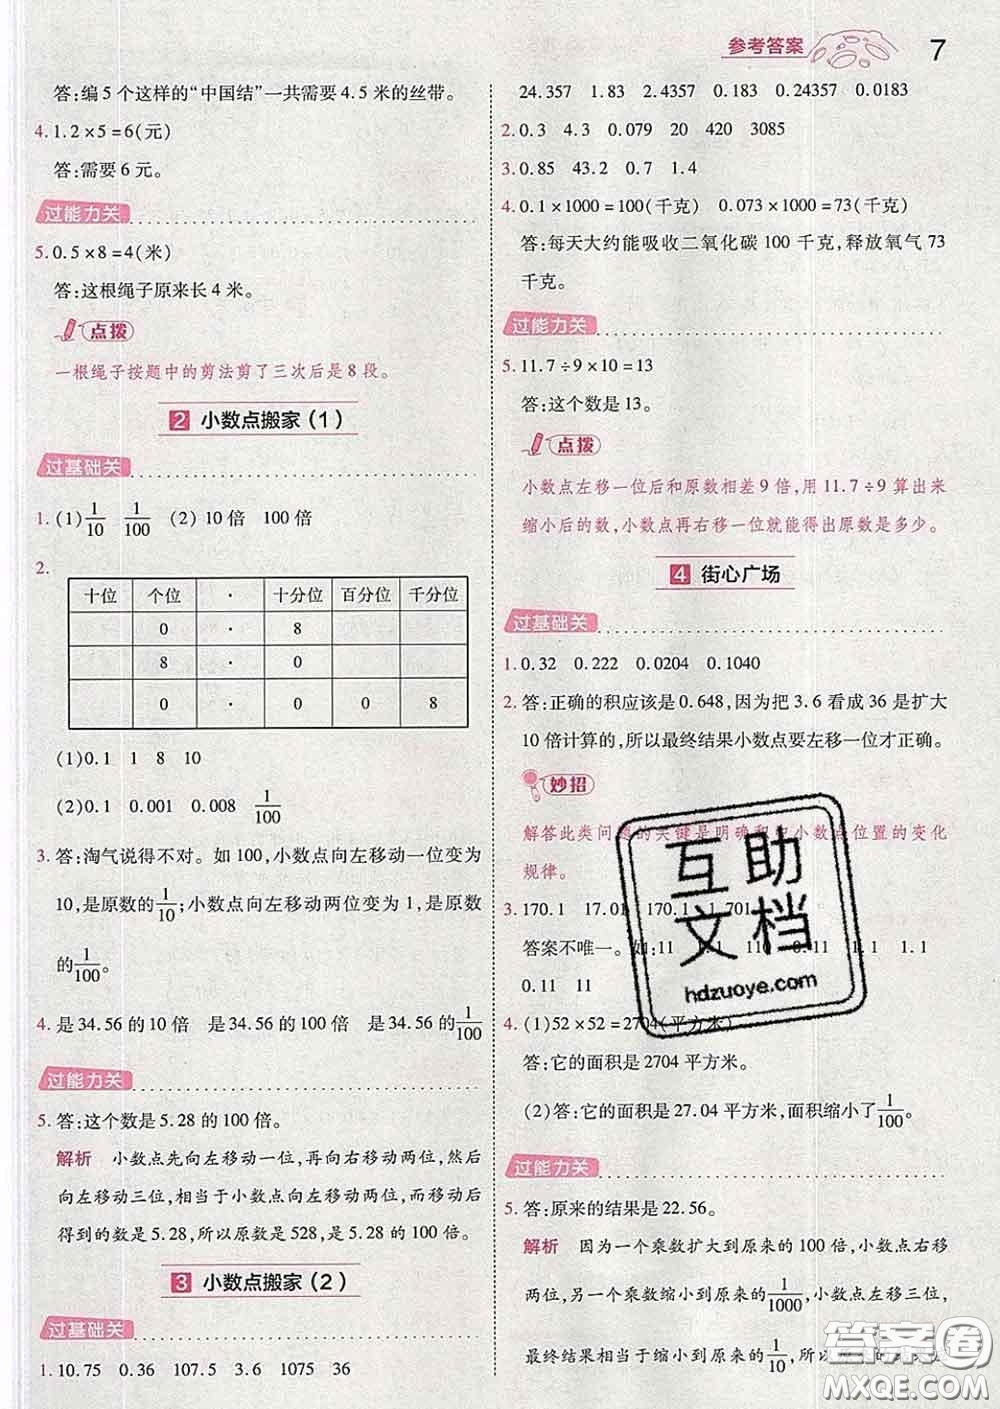 参考答案 7
答:编5个这样的“中国结”一共需要4.5米的丝带。
4. 1.2×5=6(元)
答:需要6元。
过能力关
5. 0.5×8=4(米)
答:这根绳子原来长4米。
点拨
一根绳子按题中的剪法剪了三次后是8段。
2 小数点搬家(1)
过基础关
1. (1) 1/10 1/100 (2) 10倍 100倍
2.
十位 个位 · 十分位 百分位 千分位
0 · 8
8 · 0
0 · 0 0 8
(1) 0.1 1 8 10
(2) 0.1 0.001 0.008 1/100
3. 答:淘气说得不对。如100,小数点向左移动一位变为
10,是原数的1/10;小数点向左移动两位变为1,是原数
的1/100。
4. 是34.56的10倍 是34.56的100倍 是34.56的1/100
过能力关
5. 答:这个数是5.28的100倍。
解析 小数点先向左移动一位,再向右移动两位,然后
向左移动三位,相当于小数点向左移动两位,而移动后
得到的数是5.28,所以原数是528,是5.28的100倍。
3 小数点搬家(2)
过基础关
1. 10.75 0.36 107.5 3.6 1075 36
24.357 1.83 2.4357 0.183 0.24357 0.0183
2. 0.3 4.3 0.079 20 420 3085
3. 0.85 43.2 0.7 1.4
4. 0.1×1000=100(千克) 0.073×1000=73(千克)
答:每天大约能吸收二氧化碳100千克,释放氧气73
千克。
过能力关
5. 11.7÷9×10=13
答:这个数是13。
点拨
小数点左移一位后和原数相差9倍,用11.7÷9算出来
缩小后的数,小数点再右移一位就能得出原数是多少。
4 街心广场
过基础关
1. 0.32 0.222 0.0204 0.1040
2. 答:正确的积应该是0.648,因为把3.6看成36是扩大
10倍计算的,所以最终结果小数点要左移一位才正确。
妙招
解答此类问题的关键是明确积中小数点位置的变化
规律。
3. 170.1 17.01 170.1 1.701
答案不唯一。如:11 1.1 110 0.11 1.1 1.1
0.11 11
4. (1)52×52=2704(平方米)
答:它的面积是2704平方米。
(2)答:它的面积是27.04平方米,面积缩小了1/100。
过能力关
5. 答:原来的结果是22.56。
解析 因为一个乘数扩大到原来的100倍,小数点右移
两位,另一个乘数缩小到原来的1/1000,小数点左移三位,
最终结果相当于缩小到原来的1/10,所以
互助
文档
hdzuoye.com
答案圈
MXQE.COM